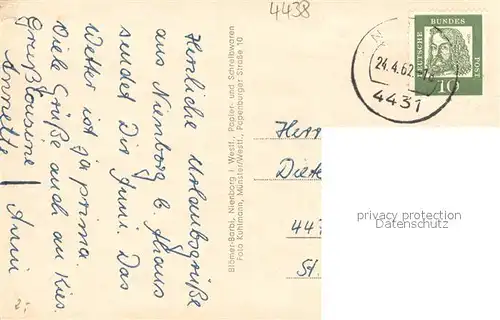 4438
Herzliche Urlaubsgrüße
aus Nienborg b. Ahaus
sendet Dir Anni. Das
Wetter ist ja prima.
Viele Grüße auch an
Annette Anni
Blömer-Barbi, Nienborg i. Westf., Papier- und Schreibwaren
Foto Kuhlmann, Münster/Westf., Papenburger Straße 10
DEUTSCHE BUNDES POST
10
24.4.62
4431
Herr
Diete
44
St.
privacy protection
Datenschutz
25